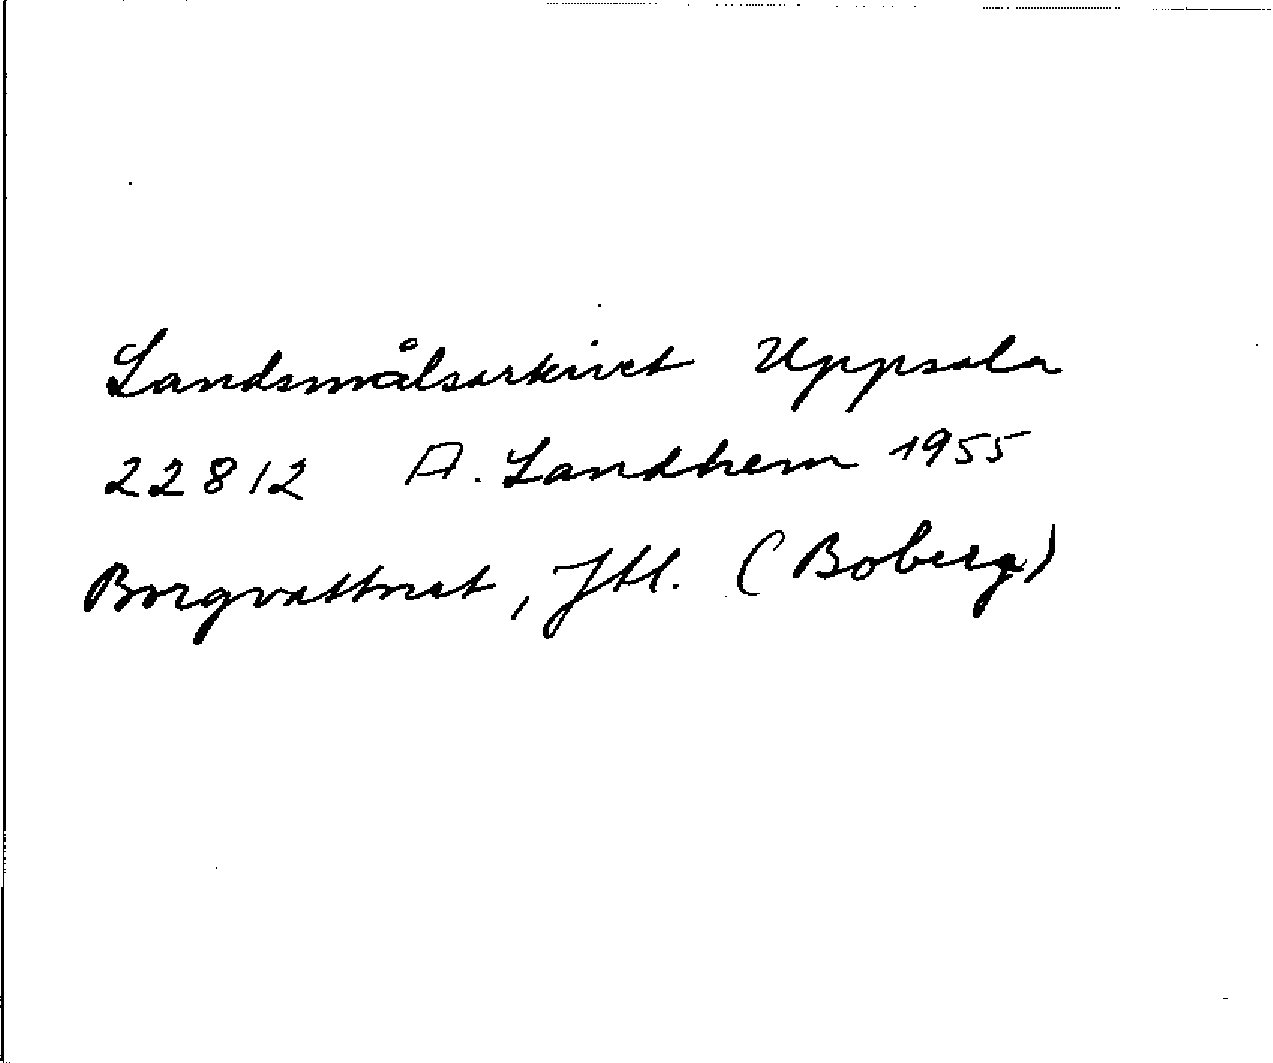 Landsmålsarkivet Uppsala
22812 A. Landhem 1955
Borgvattnet, Jtl. (Boberg)